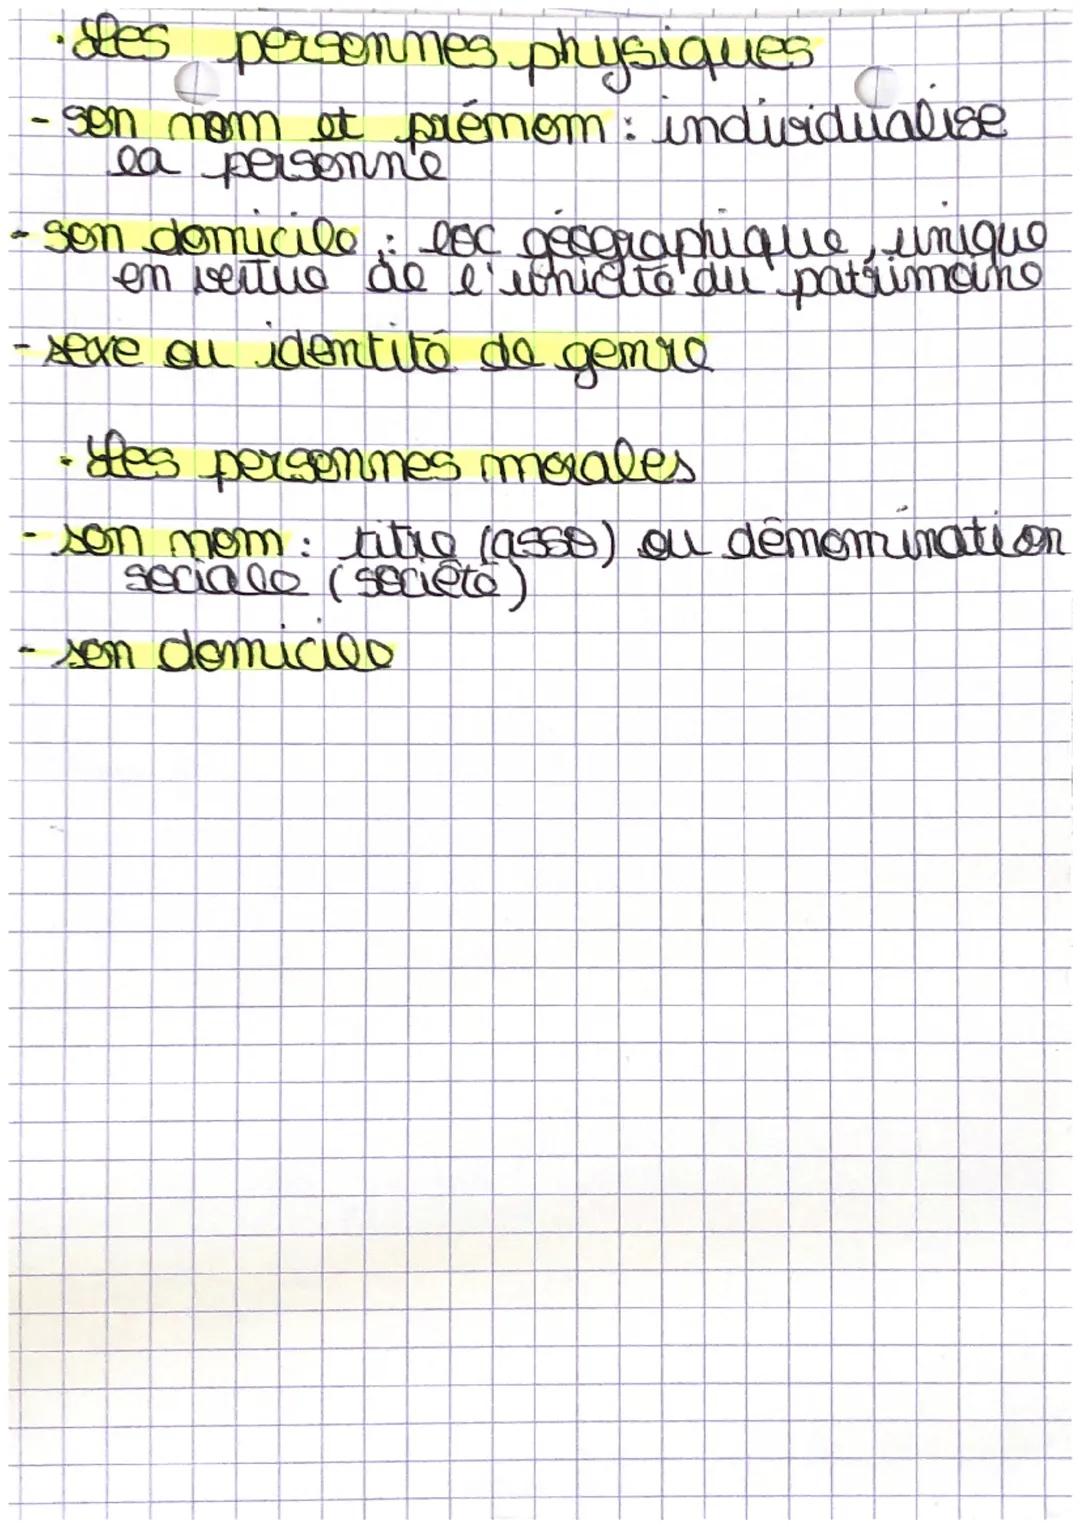 . Les personnes physiques
- son nom et prénom : individualise
la personne
- son domicile : loc géographique, unique
en vertue de l'unicité du patrimoine
- sexe ou identité de genre
. Les personnes morales
- son nom : titre (asso) ou dénomination
sociale (société)
- son domicile